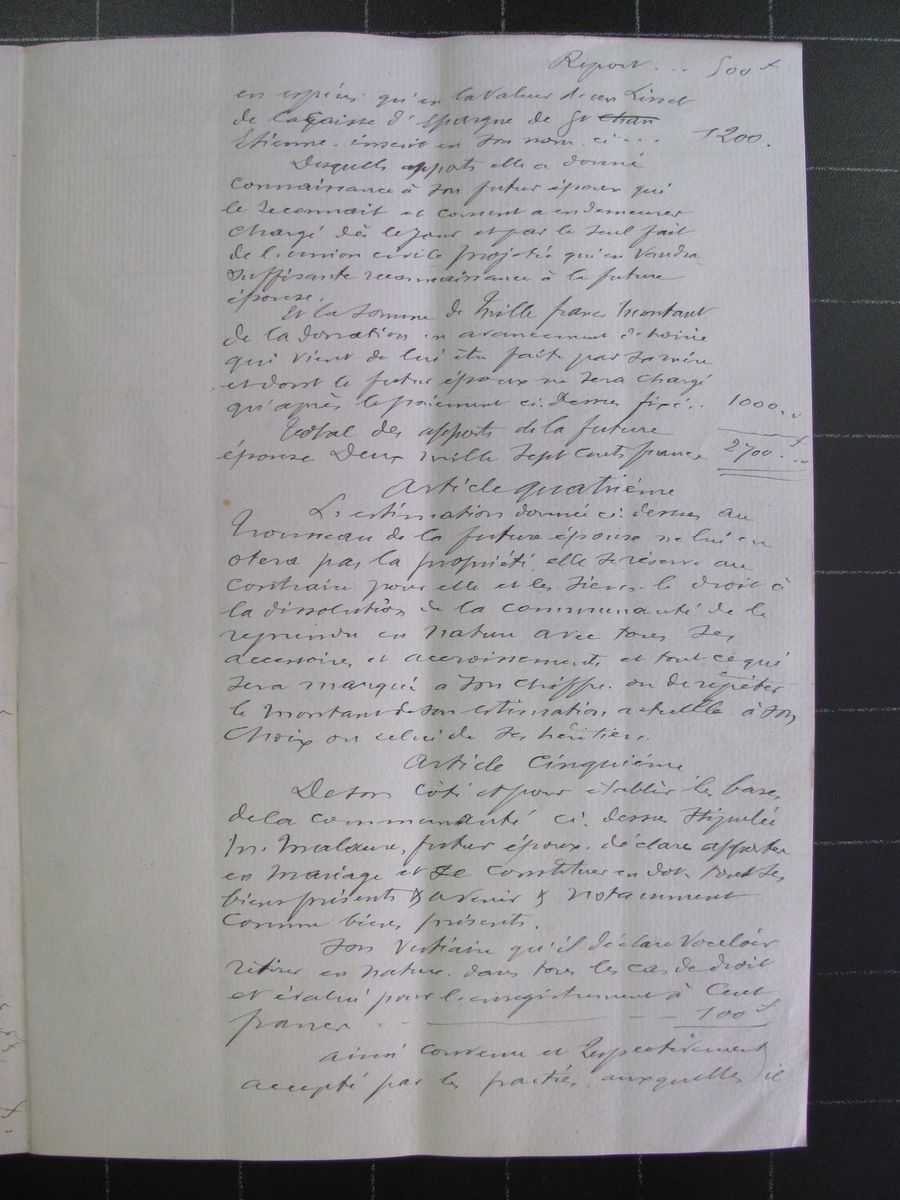 Report ... 500 f
en espèces qu'en la valeur d'un Livret
de la Caisse d'Epargne de St Chan
Etienne. inscrit en son nom. ci.... 1200.
Desquels apports elle a donné
connaissance à son futur époux qui
le reconnait et consent a en demeurer
chargé dès le jour et par le seul fait
de l'union civile projetée qui en vaudra
suffisante reconnaissance à la future
épouse.
Et la somme de Mille francs Montant
de la donation en avancement d'hoirie
qui vient de lui être faite par sa mère
et dont le futur époux ne sera chargé
qu'après le paiement ci. dessus fixé.. 1000.
Total des apports de la future
épouse Deux mille sept cents francs 2700 f
Article quatrième
L'estimation donnée ci. dessus au
Trousseau de la future épouse ne lui en
otera pas la propriété, elle se réserve au
contraire pour elle et les siens le droit à
la dissolution de la communauté de le
reprendre en nature avec tous ses
accessoires et accroissements et tout ce qui
sera marqué a son chiffre. ou de répéter
le montant de son estimation actuelle à son
choix ou celui de ses héritiers.
Article Cinquième
De son côté et pour établir les bases
de la communauté ci. dessus stipulée
M. futur époux, déclare apporter
en Mariage et se constituer en dot. tous ses
biens présents & avenir & notamment
comme biens présents.
Son Vestiaire qu'il déclare vouloir
retirer en nature. dans tous les cas de droit
et évalué pour l'enregistrement à Cent
francs 100 f
ainsi convenu et respectivement
accepté par les parties, auxquelles il